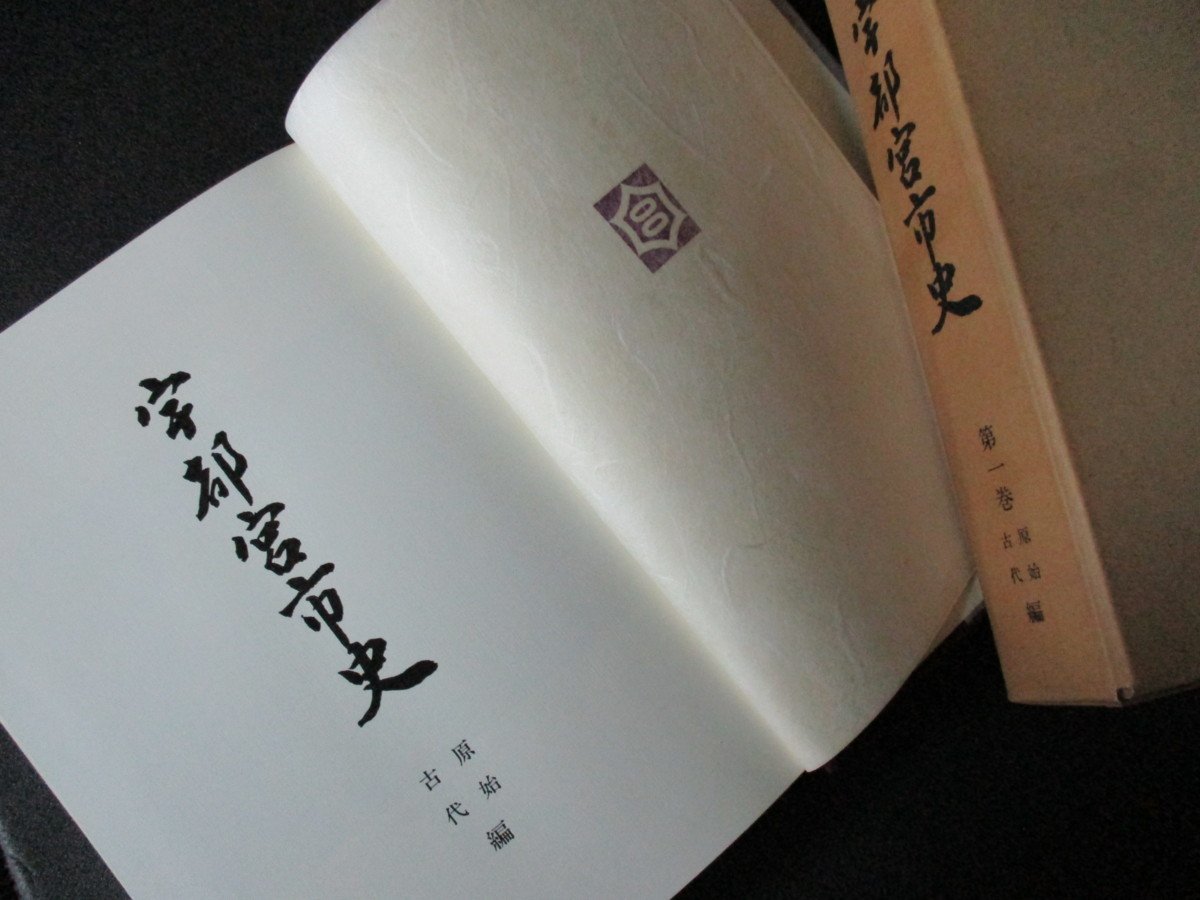 宇都宮市史
原始
古代
編
宇都宮市史
第一巻
原始
古代
編